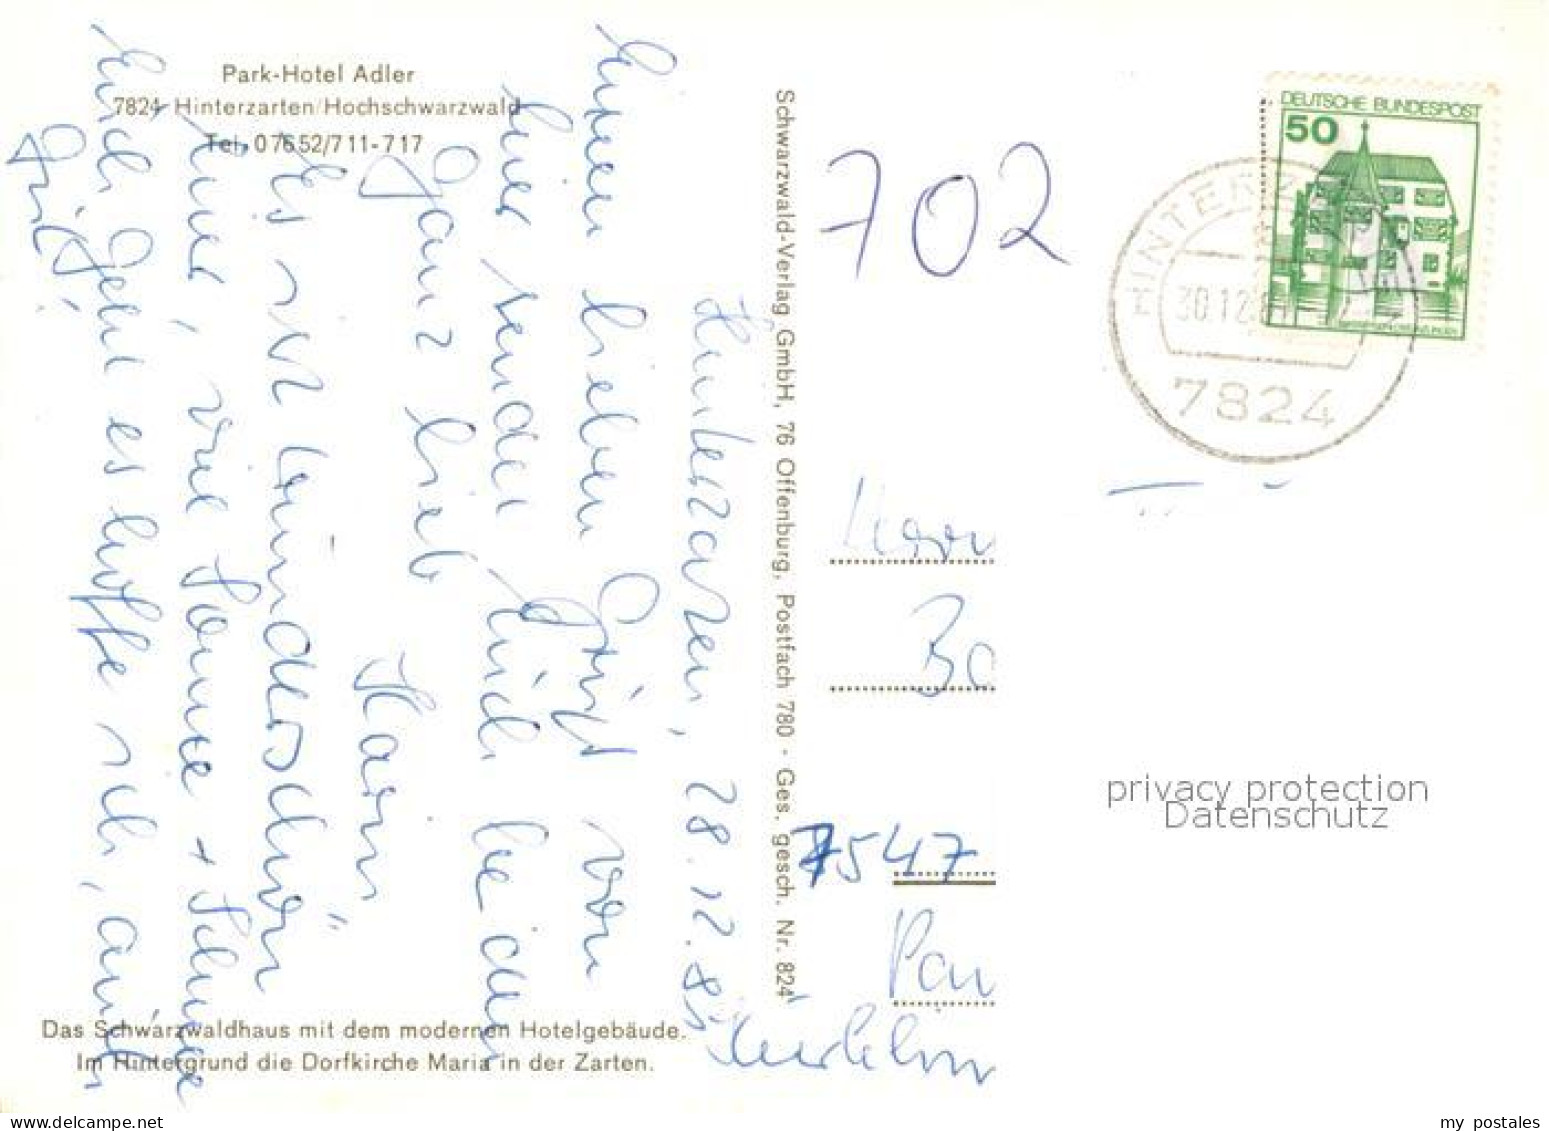 Park-Hotel Adler
7824 Hinterzarten/Hochschwarzwald
Tel. 07652/711-717
Hinterzarten, 28.12.85
Einen lieben Gruß von
hier sendet Euch beiden
Ganz lieb
Karin
Es ist wunderschön
hier, viel Sonne + Schnee
Euch geht es hoffe ich, auch
gut!
Das Schwarzwaldhaus mit dem modernen Hotelgebäude.
Im Hintergrund die Dorfkirche Maria in der Zarten.
Schwarzwald-Verlag GmbH, 76 Offenburg, Postfach 780 · Ges. gesch. Nr. 824
702
DEUTSCHE BUNDESPOST
50
30.12.
7824
7547
privacy protection
Datenschutz
my postales